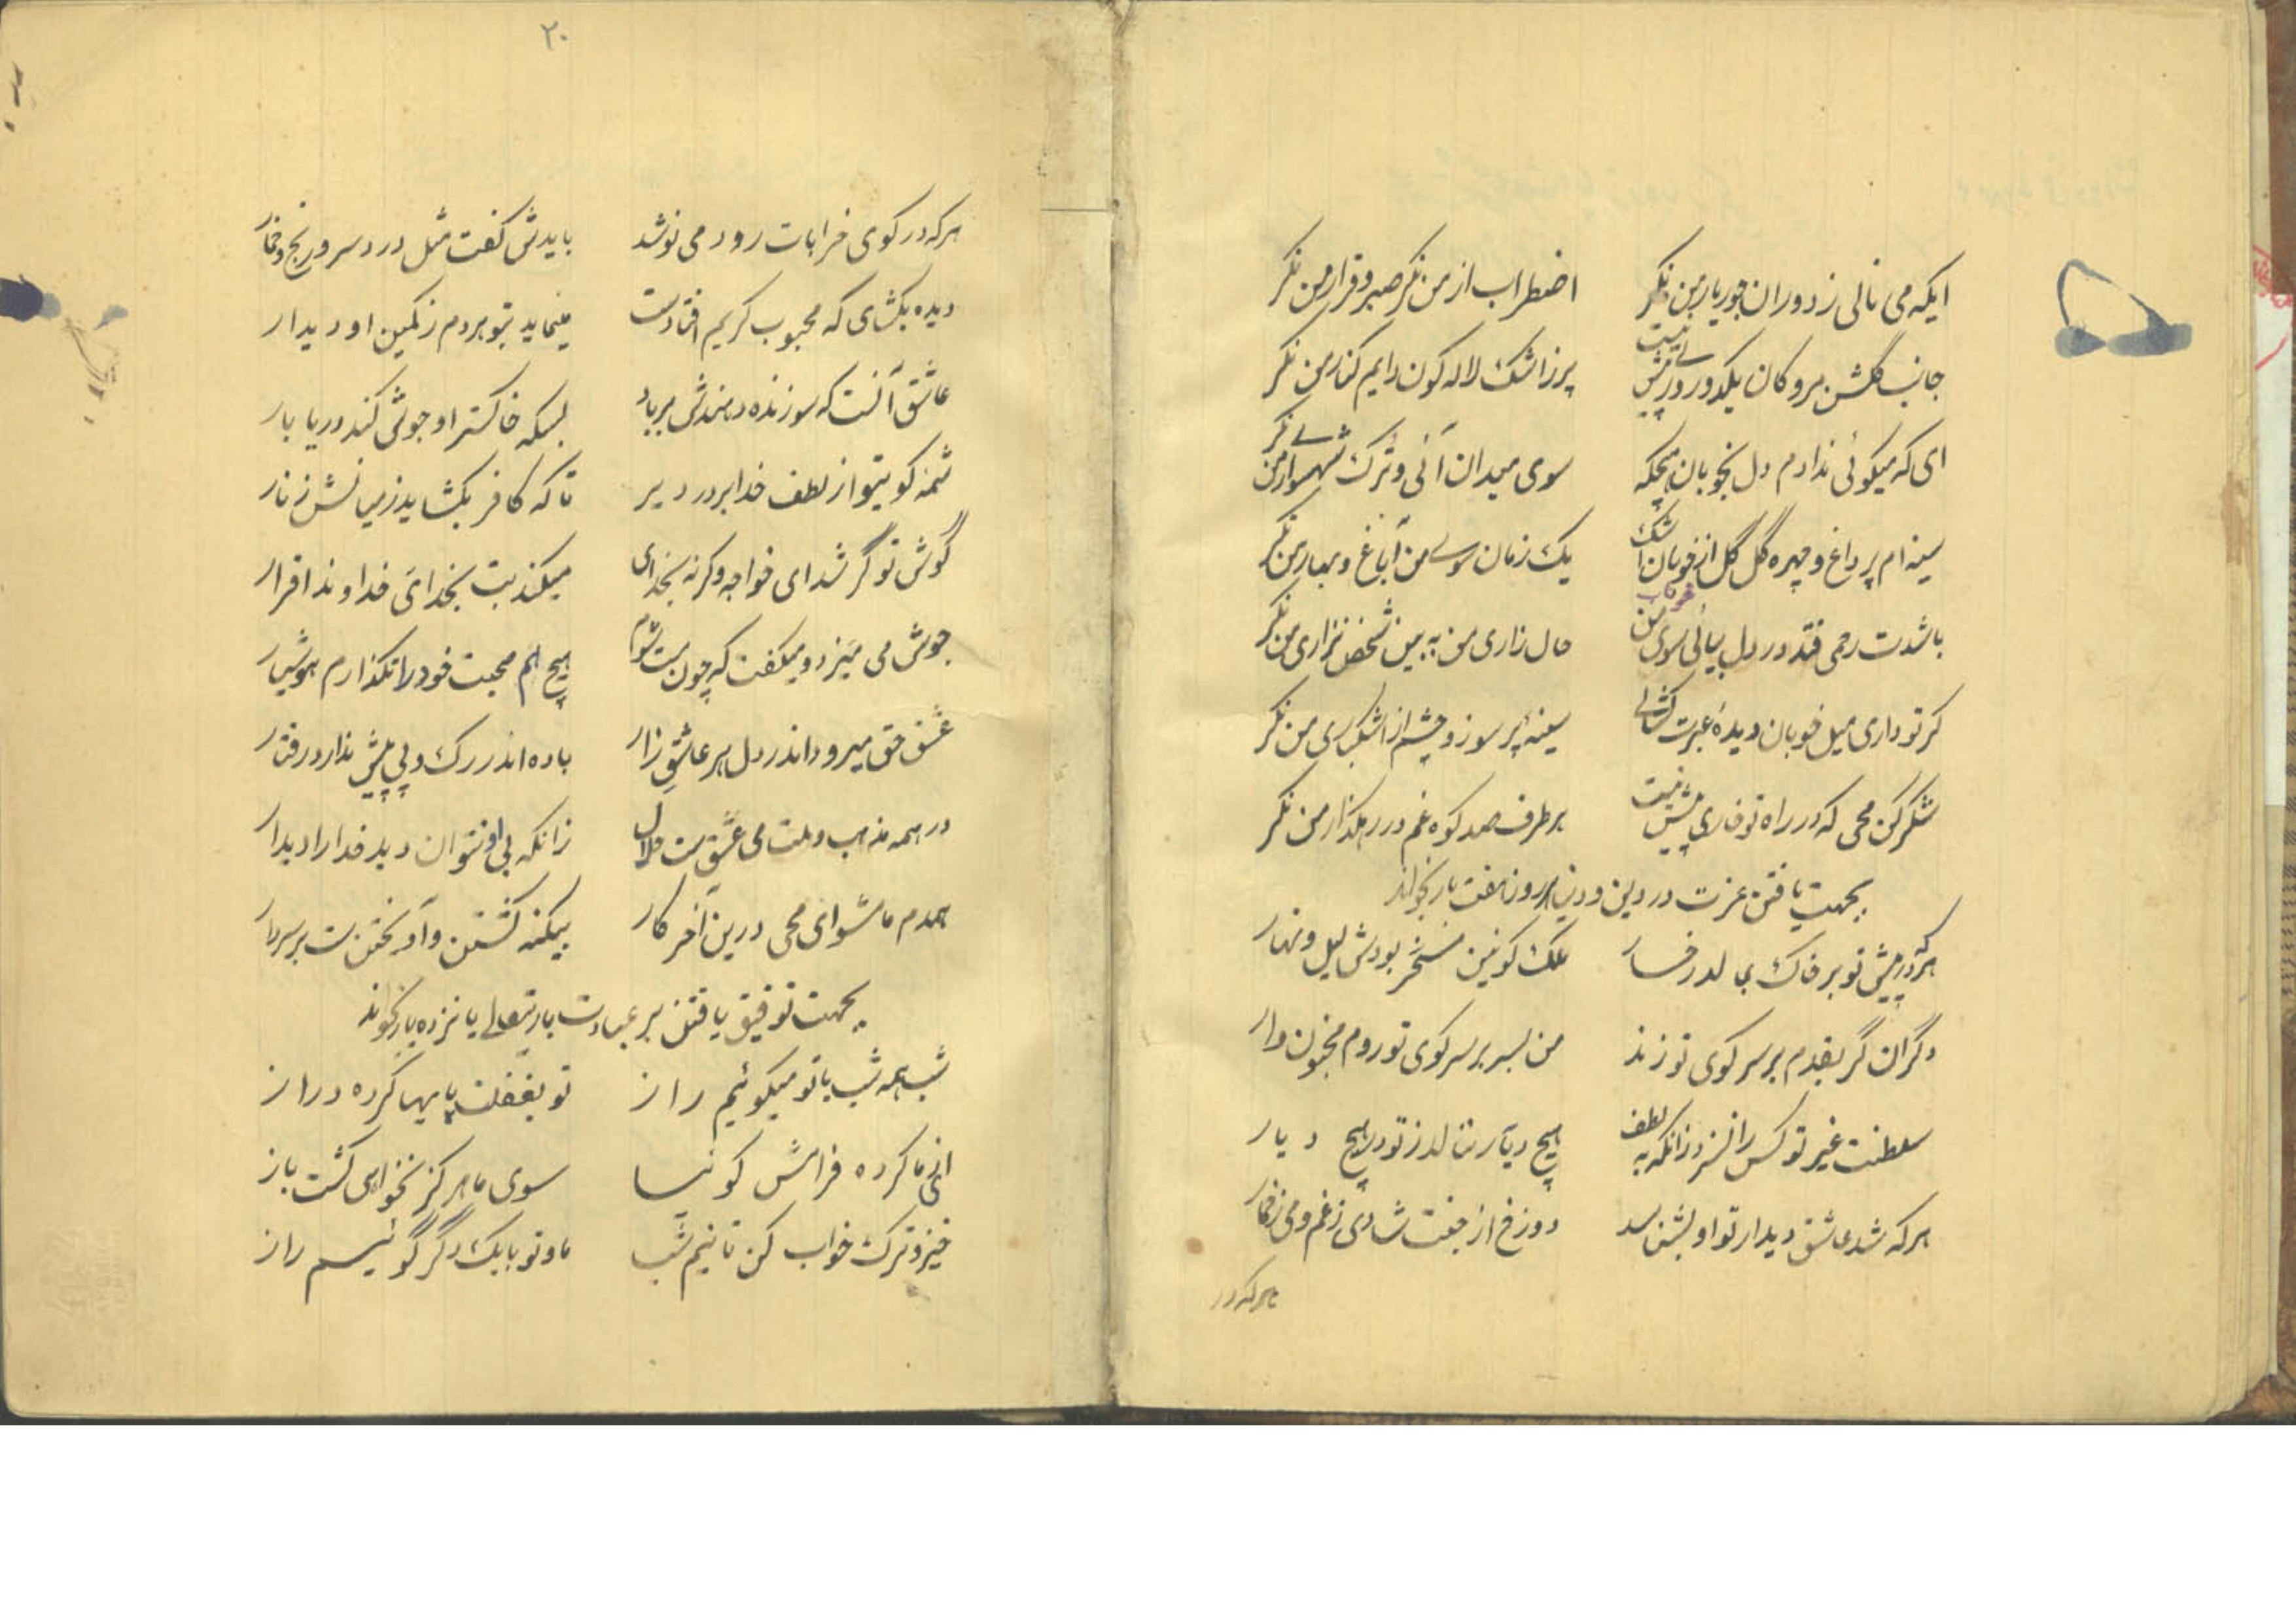 ایکه می نالی ز دوران جور یار من نگر اضطراب از من نگر صبر و قرار من نگر
جانب گلشن مرو کان یکدو روزی بیش نیست پر ز اشک لاله گون دایم کنار من نگر
ای که میگوئی ندادم دل بخوبان هیچگه سوی میدان آئی و ترک شهسوار من نگر
سینه ام پر داغ و چهره گل گل از خوناب اشک یک زمان سوی من آ باغ و بهار من نگر
باشدت رحمی فتد در دل بیائی سوی من حال زاری من به بین شخص نزاری من نگر
کر تو داری میل خوبان دیدهٔ عبرت کشای سینهٔ پر سوز و چشم از اشکباری من نگر
شکر کن محی که در راه تو خاری بیش نیست بر طرف صد کوه غم در رهگذار من نگر
بجهت یافتن عزت در دین و دنیا هر روز هفت بار بخواند
هر که در پیش تو بر خاک بمالد رخسار ملک کونین مسخر بودش لیل و نهار
دگران گر بقدم بر سر کوی تو زند من بسر بر سر کوی تو روم مجنون وار
سلطنت غیر تو کس را نسزد زانکه به لطف هیچ دیار ننالد ز تو در هیچ دیار
هر که شد عاشق دیدار تو او بشناسد دوزخ از جنت شادی ز غم و می ز خمار
هر که در
۲۰
هر که در کوی خرابات رود می نوشد بایدش گفت مثل درد سر و رنج و خمار
دیده بکشای که محبوب کریم افتادست مینماید بتو هر دم ز کمین او دیدار
عاشق آنست که سوزنده دهندش بر باد بسکه خاکستر او جوش کند دریا بار
شمهٔ کو بتو از لطف خدا بر در دیر تا که کافر بکشاید ز میانش زنار
گوش تو گر شد ای خواجه وگرنه بخدای میکند بت بخدائی خداوند اقرار
جوش می میزد و میگفت که چون مست شوم هیچ هم محبت خود را نگذارم هوشیار
عشق حق میرود اندر دل هر عاشق زار باده اندر رگ و پی بیش ندارد رفتار
در همه مذهب و ملت می عشق ست حلال زانکه بی او نتوان دید خدا را دیدار
همدم ما مشو ای محی درین آخر کار بیگنه کشتن و آویختن ست بر سر دار
بجهت توفیق یافتن بر عبادت باریتعالی پانزده بار بخواند
شب همه شب با تو میگوئیم راز تو بغفلت پایها کرده دراز
ای ما کرده فرامش گوئیا سوی ما هرگز نخواهی گشت باز
خیز و ترک خواب کن تا نیم شب ما و تو با یکدگر گوئیم راز